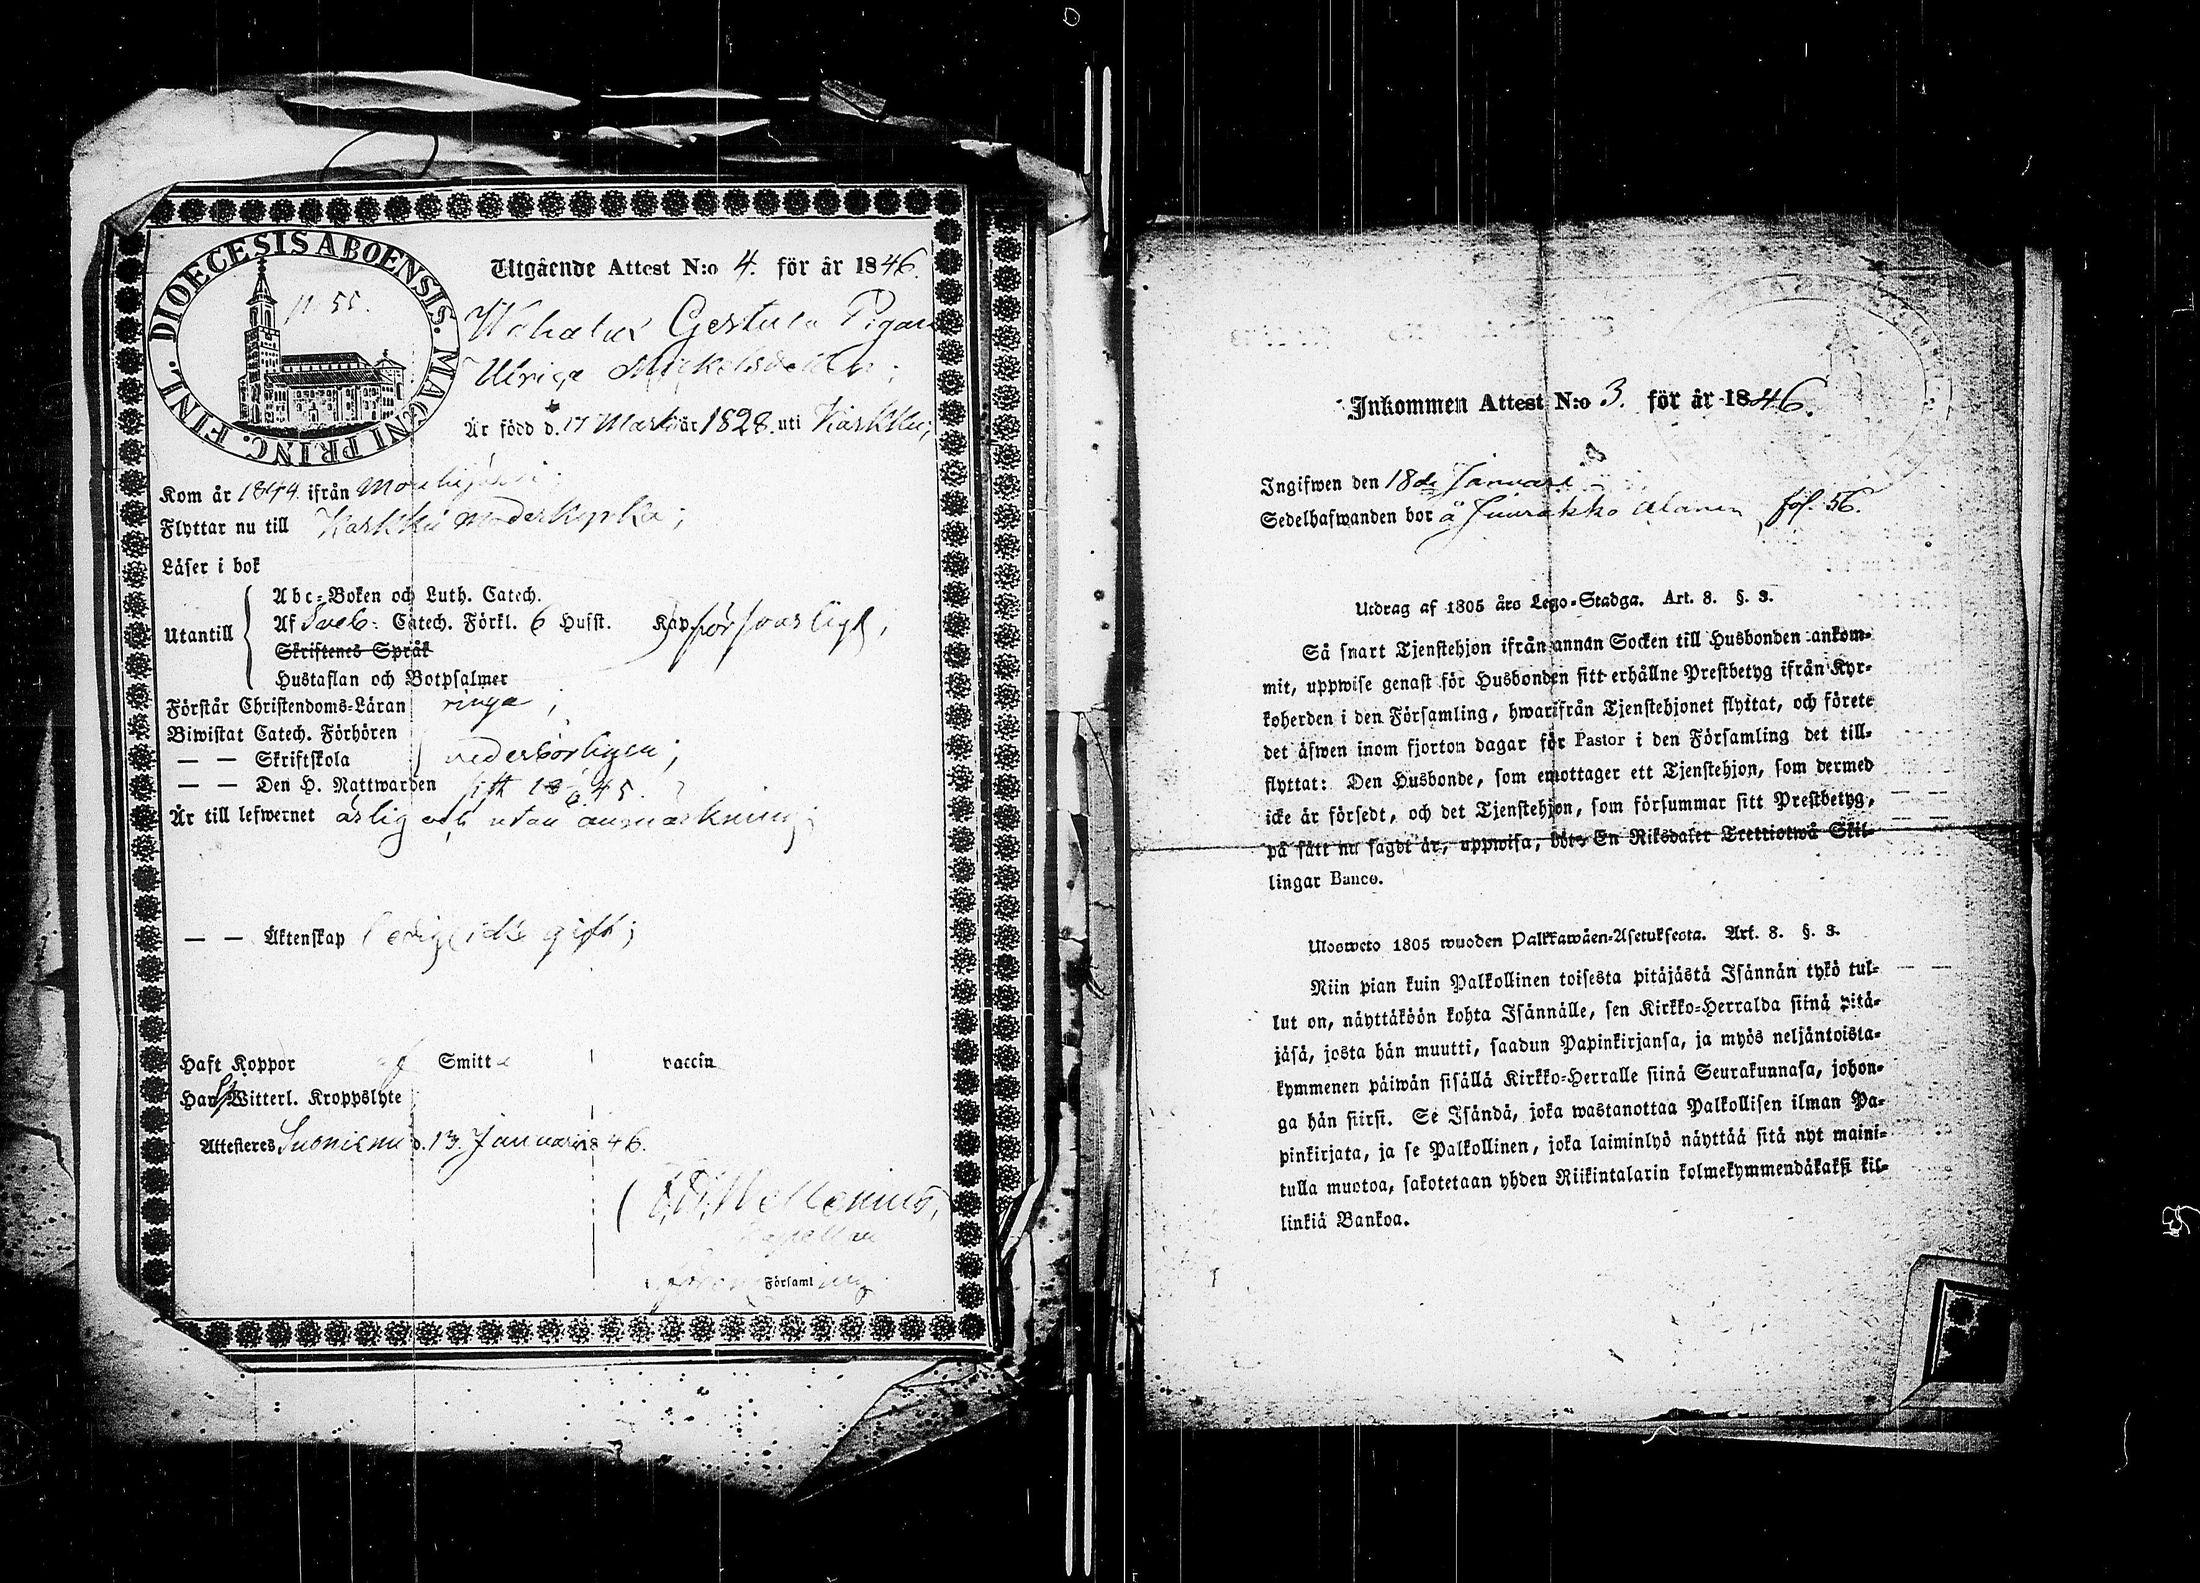 DIOECESIS ABOENSIS. MAGNI PRINC. FINL.
N 55.
Utgående Attest N:o 4. för år 1846.
Pigan
Ulrica Michelsdotter;
Är född d. 17 Martii år 1828. uti Karkku;
Kom år 1844. ifrån Mouhijärvi;
Flyttar nu till Karkku Moderkyrka;
Läser i bok
Utantill
Abc-Boken och Luth. Catech.
Af Sveb: Catech. Förkl. 6 Hufst. Kap. försvarligt,
Skriftenes Språk
Hustaflan och Botpsalmer
Förstår Christendoms-Läran ringa;
Biwistat Catech. Förhören
— — Skriftskola vederbörligen;
— — Den H. Nattwarden
Är till lefwernet ärlig och utan anmärkning;
— — Äktenskap ledig icke gift;
Haft Koppor af Smitta vaccin
Har Witterl. Kroppslyte
Attesteres Suoniemi d. 13. Januarii 1846.
Mellenius,
Capellan
Församl
Inkommen Attest N:o 3. för år 1846.
Ingifwen den 18de Januari
Sedelhafwanden bor å Juurakko Alanen fol. 56.
Utdrag af 1805 års Lego-Stadga. Art. 8. §. 3.
Så snart Tjenstehjon ifrån annan Socken till Husbonden ankom-
mit, uppwise genast för Husbonden sitt erhållne Prestbetyg ifrån Kyr-
koherden i den Församling, hwarifrån Tjenstehjonet flyttat, och förete
det äfwen inom fjorton dagar för Pastor i den Församling det till-
flyttat: Den Husbonde, som emottager ett Tjenstehjon, som dermed
icke är försedt, och det Tjenstehjon, som försummar sitt Prestbetyg,
på sätt nu sagdt är, uppwisa, böte En Riksdaler Trettiotwå Skil-
lingar Banco.
Ulosweto 1805 wuoden Palkkawäen-Asetuksesta. Art. 8. §. 3.
Niin pian kuin Palkollinen toisesta pitäjästä Isännän tykö tul-
lut on, näyttäköön kohta Isännälle, sen Kirkko-Herralda siinä pitä-
jäsä, josta hän muutti, saadun Papinkirjansa, ja myös neljäntoista-
kymmenen päiwän sisällä Kirkko-Herralle siinä Seurakunnasa, johon-
ga hän siirsi. Se Isändä, joka wastanottaa Palkollisen ilman Pa-
pinkirjata, ja se Palkollinen, joka laiminlyö näyttää sitä nyt maini-
tulla muotoa, sakotetaan yhden Riikintalarin kolmekymmendäkaksi kil-
linkiä Bankoa.